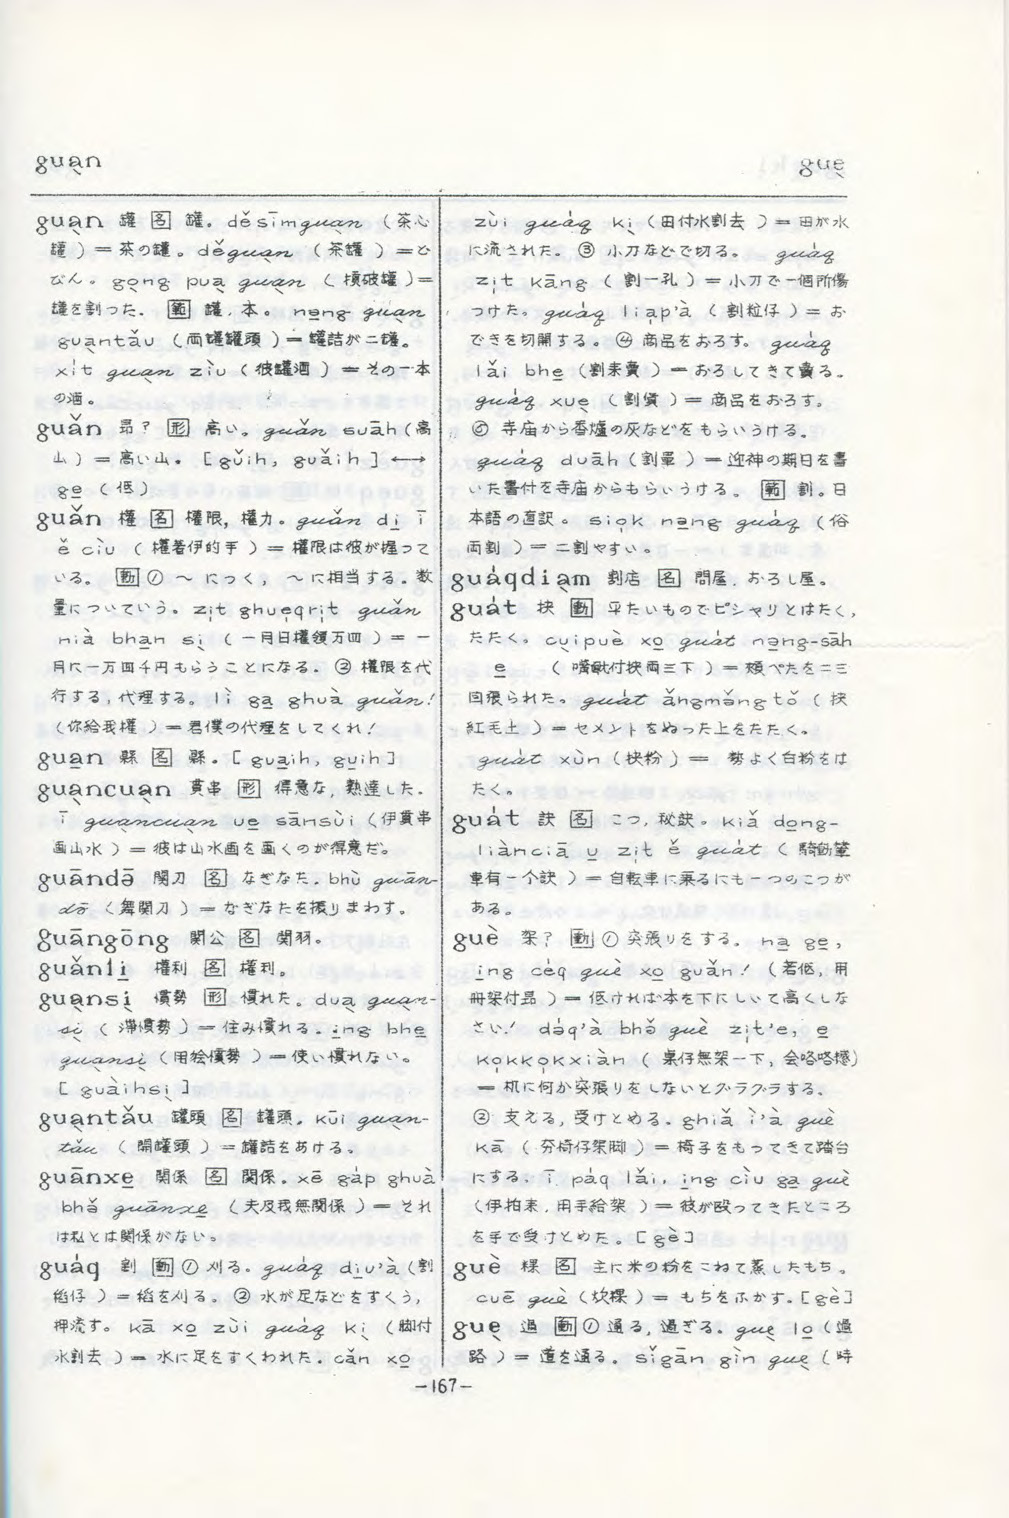 guạn
guẹ
guạn 罐 名 罐。děsīmguạn (茶心
罐) = 茶の罐。děguạn (茶罐) = ど
びん。gọng puạ guạn (摃破罐) =
罐を割った。範 罐、本。nạng guạn
guạntǎu (両罐罐頭) = 罐詰が二罐。
xit guạn ziu (彼罐酒) = その一本
の酒。
guǎn 昂? 形 高い。guǎn suāh (高
山) = 高い山。[gǔih, guǎih] ←→
ge (低)
guǎn 權 名 權限, 權力。guǎn di ī
ě ciu (權着伊的手) = 權限は彼が握って
いる。動 ① ～につく, ～に相当する。数
量についていう。zit ghueqrit guǎn
nià bhạn sị (一月日權領万四) = 一
月に一万四千円もらうことになる。② 權限を代
行する, 代理する。lì gạ ghuà guǎn!
(你給我權) = 君僕の代理をしてくれ!
guạn 縣 名 縣。[guạih, gụih]
guạncuạn 貫串 形 得意な, 熟達した。
ī guạncuạn ue sānsùi (伊貫串
画山水) = 彼は山水画を画くのが得意だ。
guāndō 関刀 名 なぎなた。bhù guān-
dō (舞関刀) = なぎなたを振りまわす。
guāngōng 関公 名 関羽。
guǎnli 權利 名 權利。
guạnsị 慣勢 形 慣れた。duạ guạn-
sị (滞慣勢) = 住み慣れる。ịng bhe
guạnsị (用絵慣勢) = 使い慣れない。
[guàihsị]
guạntǎu 罐頭 名 罐頭。kūi guạn-
tǎu (開罐頭) = 罐詰をあける。
guānxe 関係 名 関係。xē gáp ghuà
bhǒ guānxe (夫及我無関係) = それ
は私とは関係がない。
guáq 割 動 ① 刈る。guáq diu'à (割
稻仔) = 稻を刈る。② 水が足などをすくう,
押流す。kā xọ zùi guáq kị (脚付
水割去) = 水に足をすくわれた。cǎn xọ
zùi guáq kị (田付水割去) = 田が水
に流された。③ 小刀などで切る。guáq
zịt kāng (割一孔) = 小刀で一個所傷
つけた。guáq liap'à (割粒仔) = お
できを切開する。④ 商品をおろす。guáq
lǎi bhe (割来賣) = おろしてきて賣る。
guáq xuẹ (割貨) = 商品をおろす。
⑤ 寺庙から香爐の灰などをもらいうける。
guáq duāh (割單) = 迎神の期日を書
いた書付を寺庙からもらいうける。範 割。日
本語の直訳。siọk nạng guáq (俗
両割) = 二割やすい。
guáqdiạm 割店 名 問屋. おろし屋。
guát 抉 動 平たいものでピシャリとはたく,
たたく。cụipuè xọ guát nạng-sāh
e (嘴䫌付抉両三下) = 頬ぺたを二三
回張られた。guát ǎngmǒng tǒ (抉
紅毛土) = セメントをぬった上をたたく。
guát xùn (抉粉) = 勢よく白粉をは
たく。
guát 訣 名 こつ, 秘訣。kiǎ dọng-
liànciā u zịt ě guát (騎動輦
車有一个訣) = 自転車に乗るにも一つのこつが
ある。
guè 架? 動 ① 突張りをする。nạ gẹ,
ing céq guè xọ guǎn! (若低, 用
冊架付昂) = 低ければ本を下にしいて高くしな
さい! dáq'à bhǒ guè zịt'e, e
kọkkọkxiàn (棹仔無架一下, 会咯咯撼)
= 机に何か突張りをしないとグラグラする。
② 支える, 受けとめる。ghiǎ ì'à guè
kā (夯椅仔架脚) = 椅子をもってきて踏台
にする. ī páq lǎi, ịng ciu gạ guè
(伊拍来, 用手給架) = 彼が殴ってきたところ
を手で受けとめた。[gè]
guè 粿 名 主に米の粉をこねて蒸したもち。
cuē guè (炊粿) = もちをふかす。[gè]
guẹ 過 動 ① 通る, 過ぎる。guẹ lọ (過
路) = 道を通る。sǐgān gìn guẹ (時
—167—